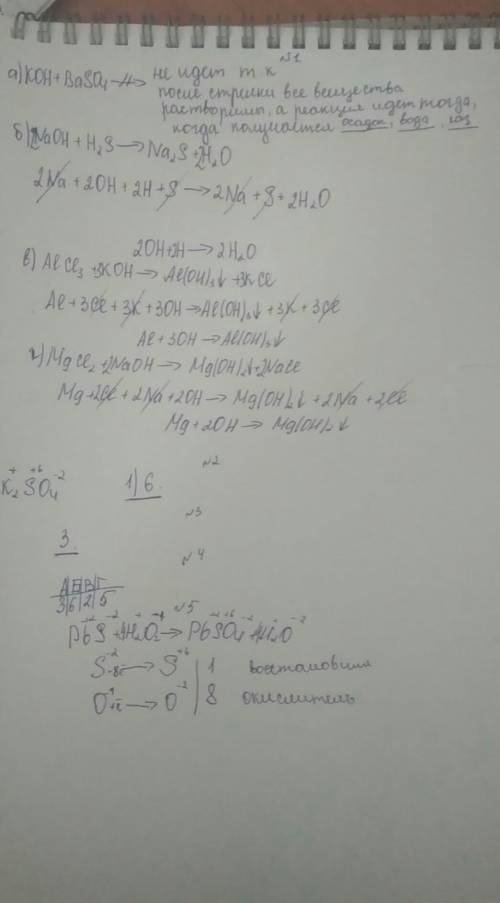 №1
а) KOH + BaSO₄ -//-> не идет т.к
после стрелки все вещества
растворимы, а реакция идет тогда,
когда получается осадок, вода, газ
б) 2NaOH + H₂S → Na₂S + 2H₂O
2Na + 2OH + 2H + S → 2Na + S + 2H₂O
2OH + 2H → 2H₂O
в) AlCl₃ + 3KOH → Al(OH)₃↓ + 3KCl
Al + 3Cl + 3K + 3OH → Al(OH)₃↓ + 3K + 3Cl
Al + 3OH → Al(OH)₃↓
г) MgCl₂ + 2NaOH → Mg(OH)₂↓ + 2NaCl
Mg + 2Cl + 2Na + 2OH → Mg(OH)₂↓ + 2Na + 2Cl
Mg + 2OH → Mg(OH)₂↓
№2
K₂⁺S⁺⁶O₄⁻² 1) 6.
№3
3.
№4
А|Б|В|Г
3|6|2|5
№5
Pb⁺²S⁻² + 4H₂⁺O₂⁻¹ → Pb⁺²S⁺⁶O₄⁻² + 4H₂⁺O⁻²
S⁻² -8e → S⁺⁶ | 1 восстановит
O⁻¹ +1e → O⁻² | 8 окислитель